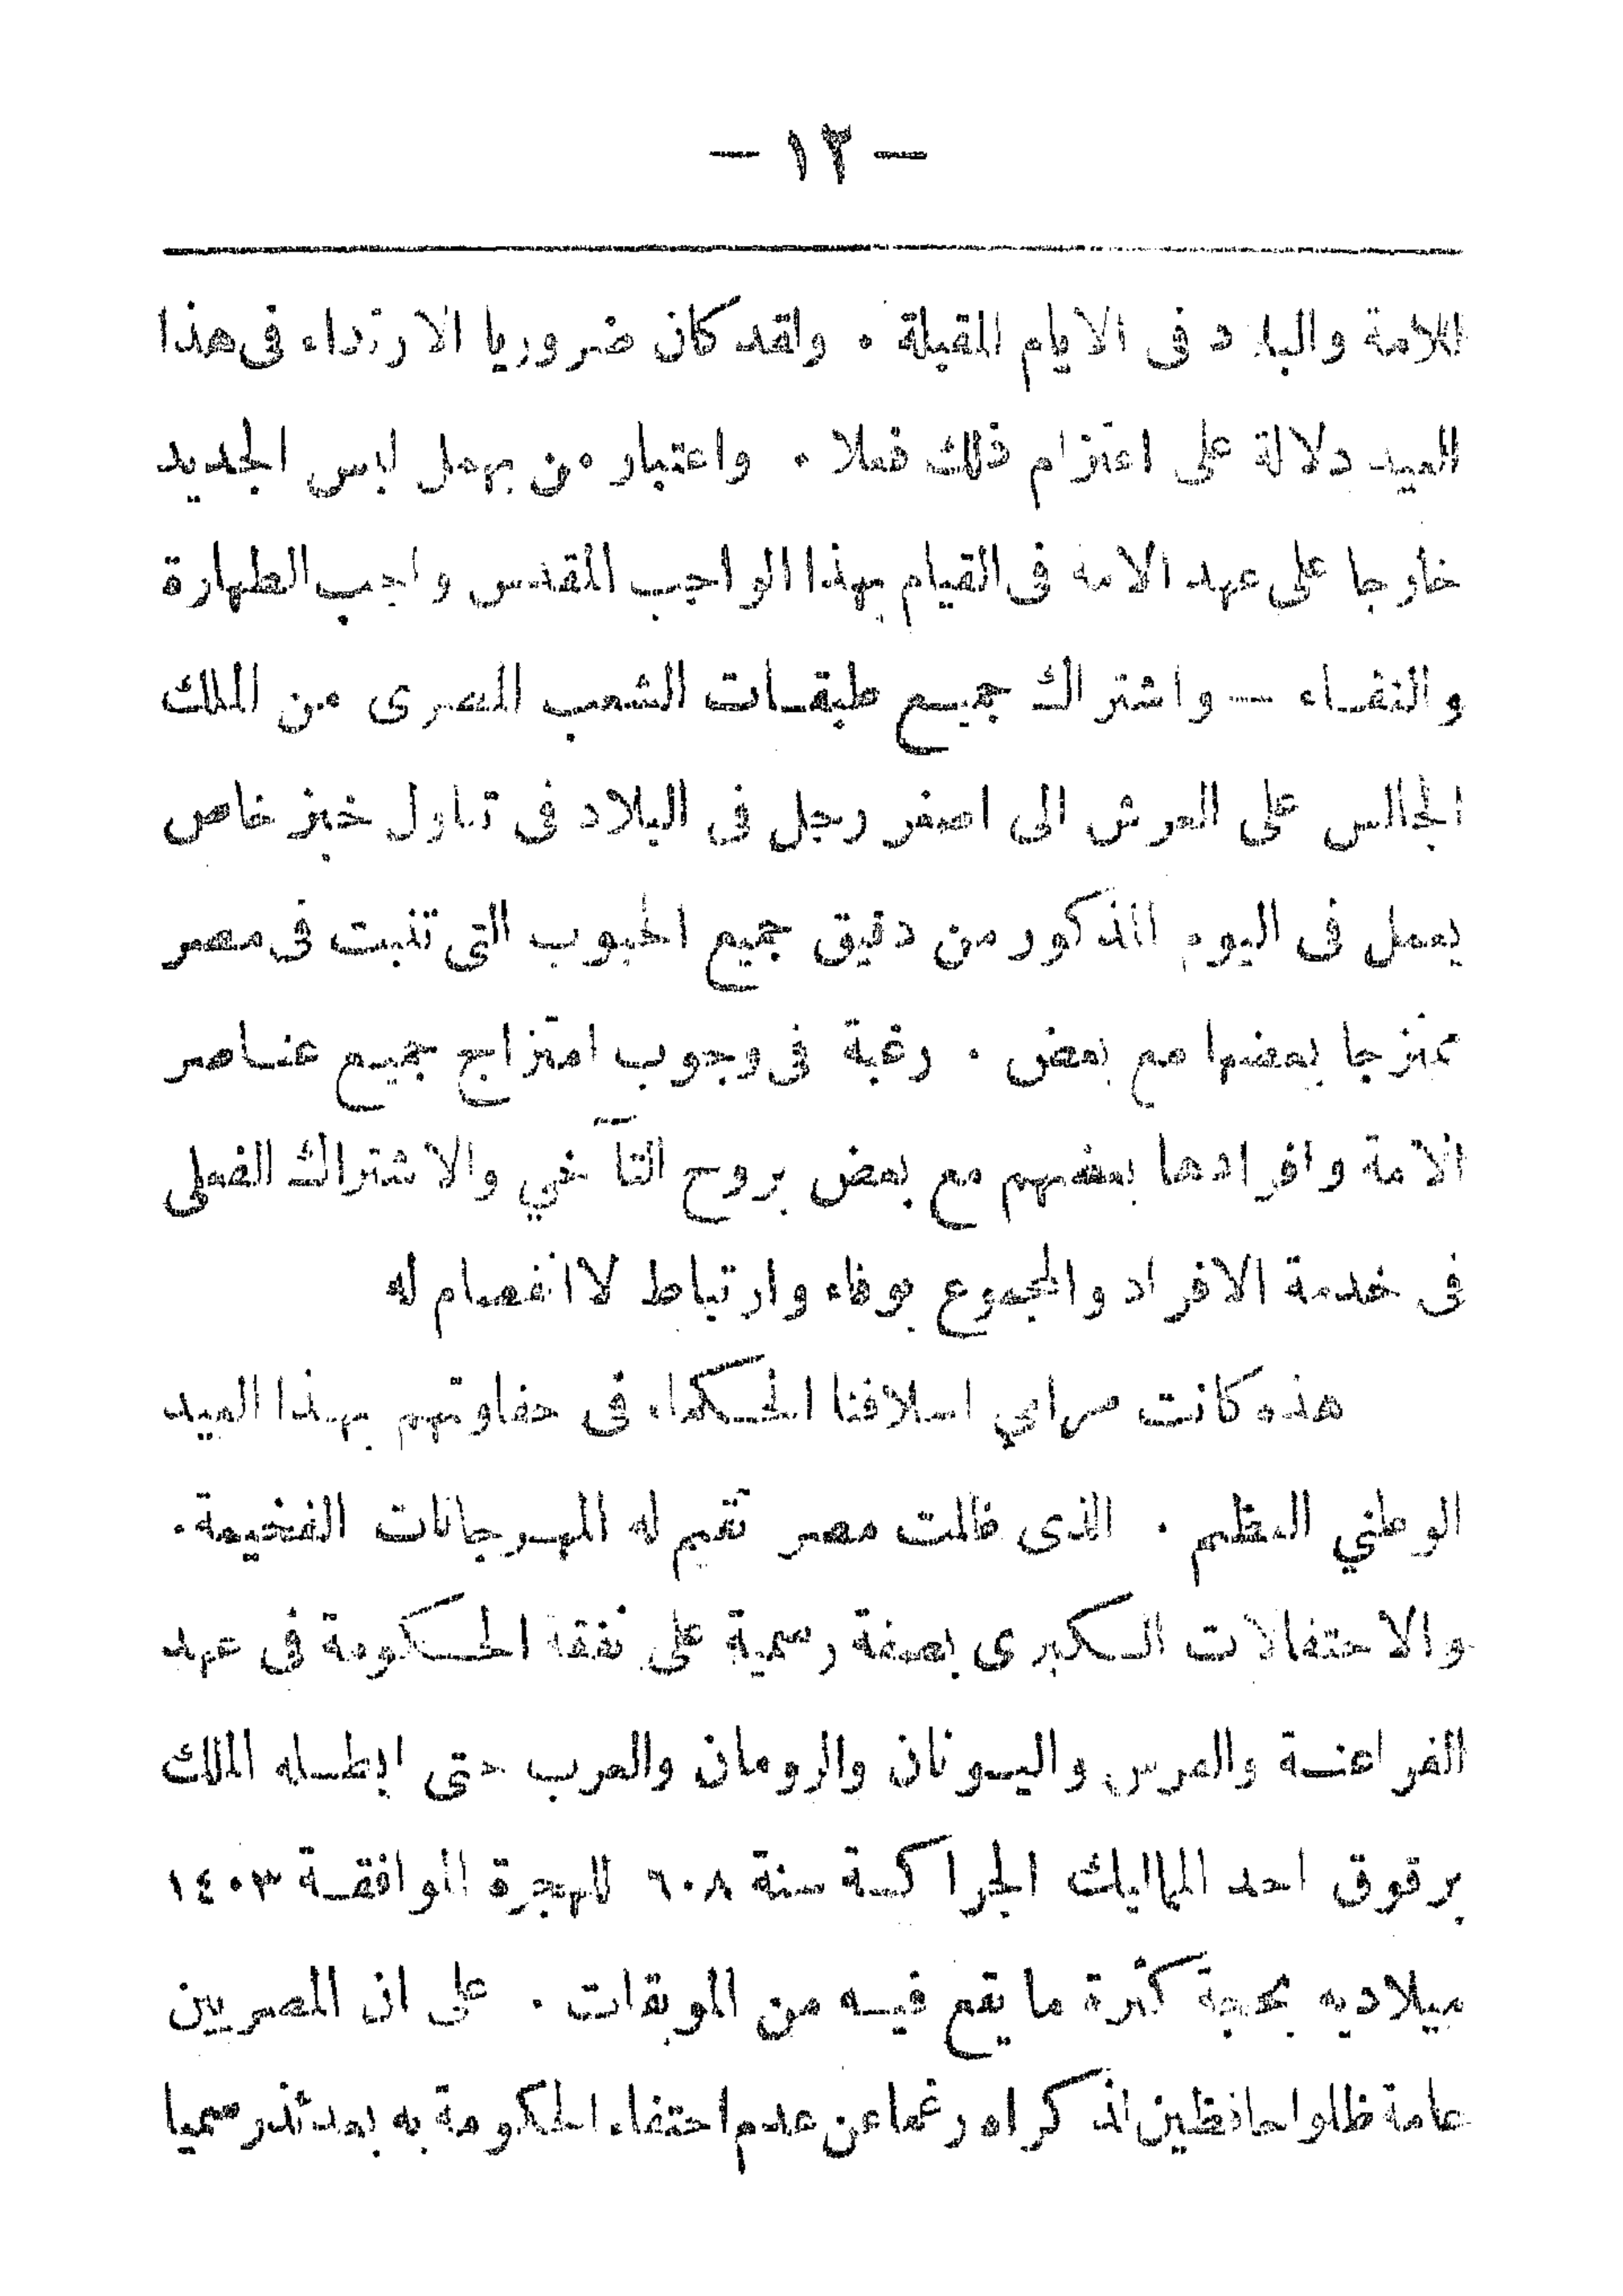 — ١٣ —
للامة والبلاد فى الايام المقبلة . ولقد كان ضروريا الارتداء فى هذا
العيد دلالة على اعتزام ذلك فعلا . واعتبار من يهمل لبس الجديد
خارجا على عهد الامة فى القيام بهذا الواجب المقدس واجب الطهارة
والنقاء — واشتراك جميع طبقات الشعب المصرى من الملك
الجالس على العرش الى اصغر رجل فى البلاد فى تناول خبز خاص
يعمل فى اليوم المذكور من دقيق جميع الحبوب التى تنبت فى مصر
ممتزجا بعضها مع بعض . رغبة فى وجوب امتزاج جميع عناصر
الامة وافرادها بعضهم مع بعض بروح التآخي والاشتراك الفعلى
فى خدمة الافراد والمجموع بوفاء وارتباط لا انفصام له
هذه كانت مرامي اسلافنا الحكماء فى حفاوتهم بهذا العيد
الوطني العظيم . الذى ظلت مصر تقيم له المهرجانات الفخيمة .
والاحتفالات الكبرى بصفة رسمية على نفقة الحكومة فى عهد
الفراعنة والفرس واليونان والرومان والعرب حتى ابطله الملك
برقوق احد المماليك الجراكسة سنة ٦٠٨ للهجرة الموافقة ١٤٠٣
ميلاديه بحجة كثرة ما يقع فيه من الموبقات . على ان المصريين
عامة ظلوا حافظين لذكراه رغما عن عدم احتفاء الحكومة به بعدئذ رسميا